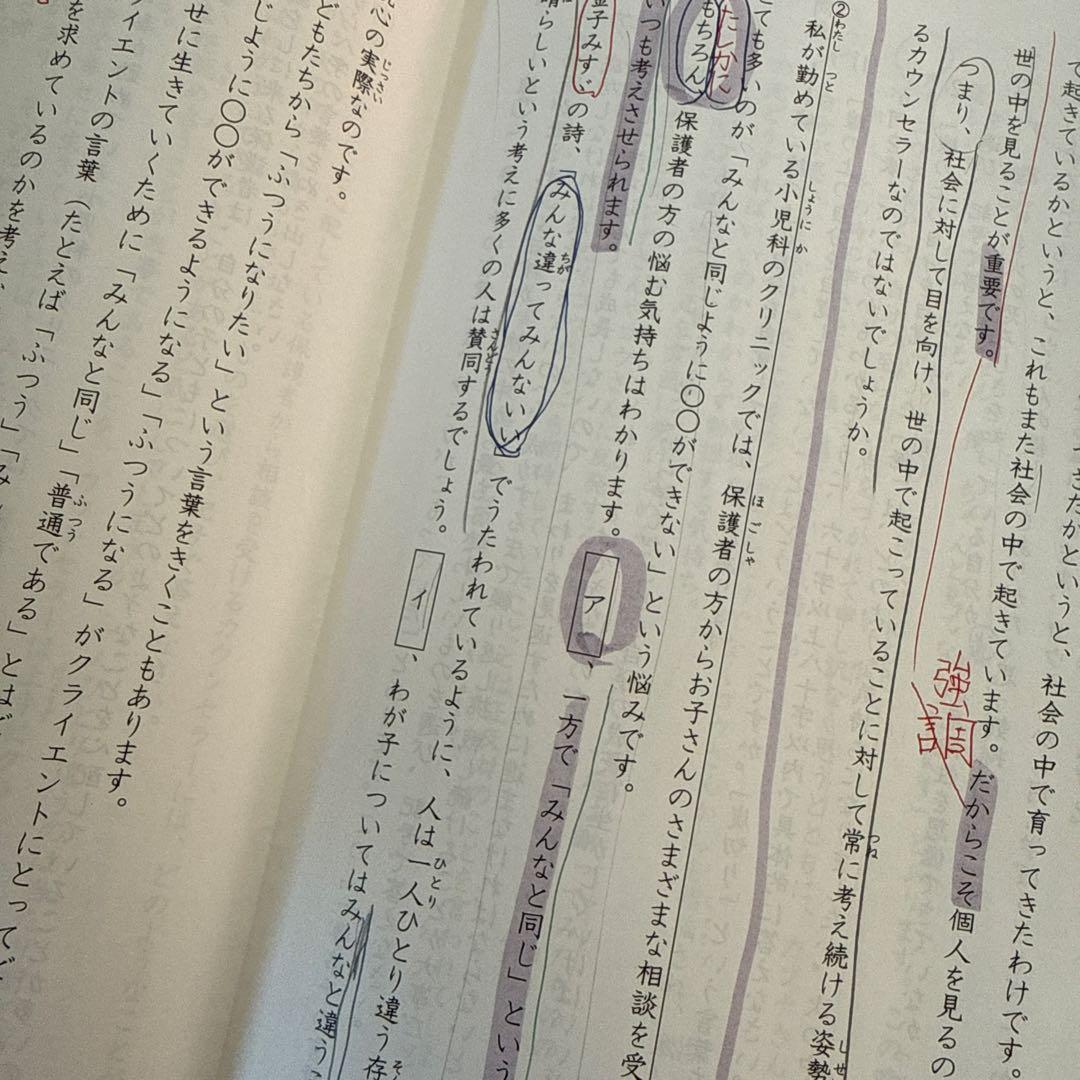 できたかというと、社会の中で育ってきたわけです。
で起きているかというと、これもまた社会の中で起きています。だからこそ個人を見るの
世の中を見ることが重要です。
強調
つまり、社会に対して目を向け、世の中で起こっていることに対して常に考え続ける姿勢
るカウンセラーなのではないでしょうか。
②私が勤めている小児科のクリニックでは、保護者の方からお子さんのさまざまな相談を受
ても多いのが「みんなと同じように〇〇ができない」という悩みです。
たしかに
もちろん保護者の方の悩む気持ちはわかります。ア、一方で「みんなと同じ」という
いつも考えさせられます。
金子みすゞの詩、「みんな違ってみんないい」でうたわれているように、人は一人ひとり違う存
晴らしいという考えに多くの人は賛同するでしょう。イ、わが子についてはみんなと違う
心の実際なのです。
どもたちから「ふつうになりたい」という言葉をきくこともあります。
じように〇〇ができるようになる」「ふつうになる」がクライエントにとって
せに生きていくために「みんなと同じ」「普通である」とは
イエントの言葉（たとえば「ふつう」「み
を求めているのかを考え、